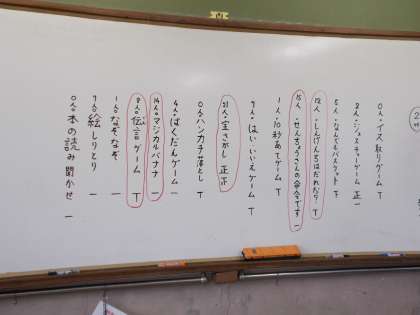 0人・イス取りゲーム T
2人・ジェスチャーゲーム 正一
5人・なんでもバスケット T
12人・しんげんちはだれだ? T
15人・せんちょうさんの命令です 一
1人・10秒あてゲーム
9人・はい、いいえゲーム T
21人・宝さがし 正
0人・ハンカチ落とし T
4人・ばくだんゲーム 一
14人・マジカルバナナ 一
8人・伝言ゲーム T
1人・なぞなぞ 一
7人・絵しりとり 一
0人・本の読み聞かせ 一